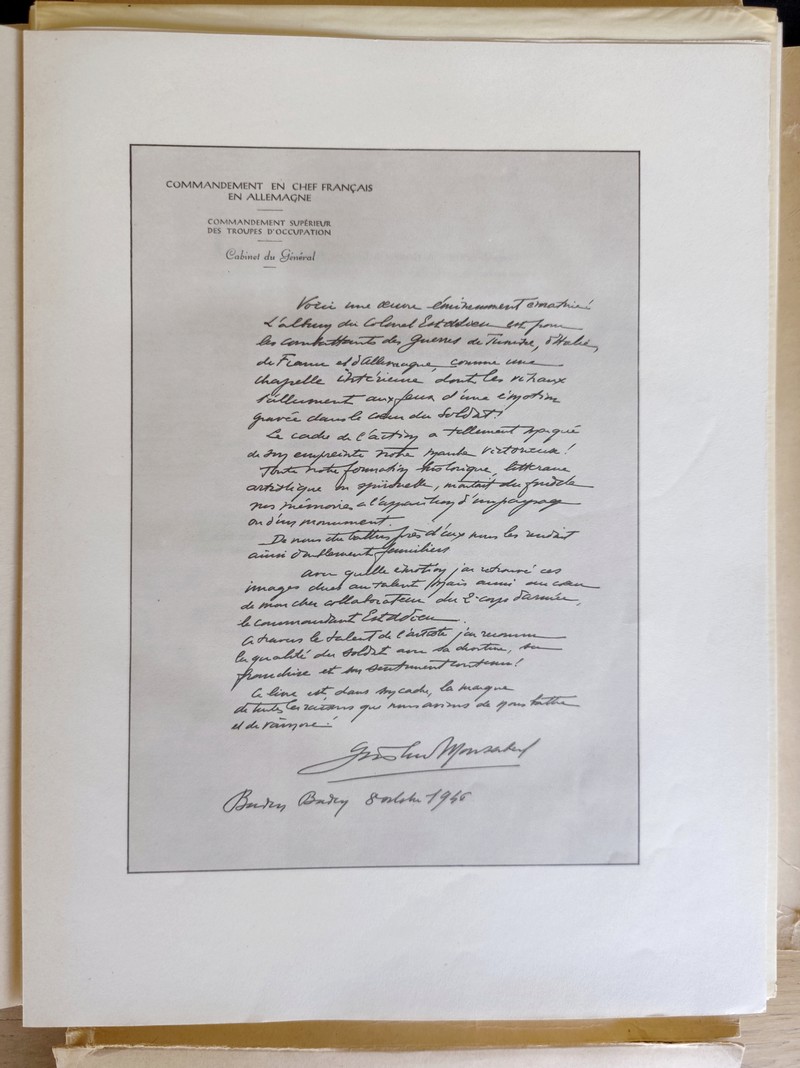 COMMANDEMENT EN CHEF FRANÇAIS
EN ALLEMAGNE
COMMANDEMENT SUPÉRIEUR
DES TROUPES D'OCCUPATION
Cabinet du Général
Voici une œuvre éminemment
L'album du Colonel Estadieu est pour
les combattants des Guerres de Tunisie, d'Italie,
de France et d'Allemagne, comme une
chapelle intérieure dont les vitraux
s'allument aux feux d'une émotion
gravée dans le cœur du soldat!
Le cadre de l'action a tellement marqué
de son empreinte notre marche victorieuse!
Toute notre formation historique, littéraire
artistique ou spirituelle, montait du fond de
nos mémoires à l'apparition d'un paysage
ou d'un monument.
De nous être battus près d'eux nous les rendait
ainsi doublement familiers
Avec quelle émotion j'ai retrouvé ces
images dues au talent mais aussi au cœur
de mon cher collaborateur du 2e corps d'armée,
le commandant Estadieu.
A travers le talent de l'artiste j'ai reconnu
la qualité du soldat avec sa droiture, sa
franchise et son sentiment contenu!
Ce livre est, dans son cadre, la marque
de toutes les raisons que nous avions de nous battre
et de vaincre!
Goislard Monsabert
Baden Baden 8 octobre 1946